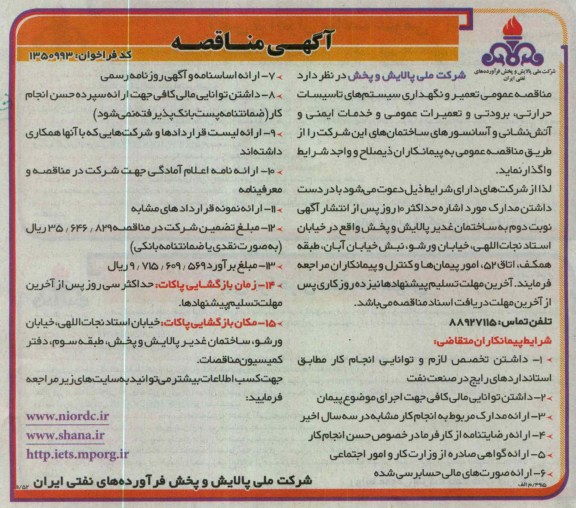 آگهی مناقصه
کد فراخوان: ۱۳۵۰۹۹۳
شرکت ملی پالایش و پخش فرآورده‌های نفتی ایران
شرکت ملی پالایش و پخش در نظر دارد
مناقصه عمومی تعمیر و نگهداری سیستم‌های تاسیسات
حرارتی، برودتی و تعمیرات عمومی و خدمات ایمنی و
آتش‌نشانی و آسانسورهای ساختمان‌های این شرکت را از
طریق مناقصه عمومی به پیمانکاران ذیصلاح و واجد شرایط
واگذار نماید.
لذا از شرکت‌های دارای شرایط ذیل دعوت می‌شود با در دست
داشتن مدارک مورد اشاره حداکثر ۱۰ روز پس از انتشار آگهی
نوبت دوم به ساختمان غدیر پالایش و پخش واقع در خیابان
استاد نجات‌اللهی، خیابان ورشو، نبش خیابان آبان، طبقه
همکف، اتاق ۵۲، امور پیمان‌ها و کنترل و پیمانکاران مراجعه
فرمایند. آخرین مهلت تسلیم پیشنهادها نیز ده روز کاری پس
از آخرین مهلت دریافت اسناد مناقصه می‌باشد.
تلفن تماس: ۸۸۹۲۷۱۱۵
شرایط پیمانکاران متقاضی:
۱- داشتن تخصص لازم و توانایی انجام کار مطابق
استانداردهای رایج در صنعت نفت
۲- داشتن توانایی مالی کافی جهت اجرای موضوع پیمان
۳- ارائه مدارک مربوط به انجام کار مشابه در سه سال اخیر
۴- ارائه رضایتنامه از کارفرما در خصوص حسن انجام کار
۵- ارائه گواهی صادره از وزارت کار و امور اجتماعی
۶- ارائه صورت‌های مالی حسابرسی شده
۷- ارائه اساسنامه و آگهی روزنامه رسمی
۸- داشتن توانایی مالی کافی جهت ارائه سپرده حسن انجام
کار (ضمانتنامه پست بانک پذیرفته نمی‌شود)
۹- ارائه لیست قراردادها و شرکت‌هایی که با آنها همکاری
داشته‌اند
۱۰- ارائه نامه اعلام آمادگی جهت شرکت در مناقصه و
معرفینامه
۱۱- ارائه نمونه قراردادهای مشابه
۱۲- مبلغ تضمین شرکت در مناقصه ۳۵٫۶۴۶٫۸۲۹ ریال
(به صورت نقدی یا ضمانتنامه بانکی)
۱۳- مبلغ برآورد ۹٫۷۱۵٫۶۰۹٫۵۶۹ ریال
۱۴- زمان بازگشایی پاکات: حداکثر سی روز پس از آخرین
مهلت تسلیم پیشنهادها.
۱۵- مکان بازگشایی پاکات: خیابان استاد نجات‌اللهی، خیابان
ورشو، ساختمان غدیر پالایش و پخش، طبقه سوم، دفتر
کمیسیون مناقصات.
جهت کسب اطلاعات بیشتر می‌توانید به سایت‌های زیر مراجعه
فرمایید:
www.niordc.ir
www.shana.ir
http.iets.mporg.ir
شرکت ملی پالایش و پخش فرآورده‌های نفتی ایران